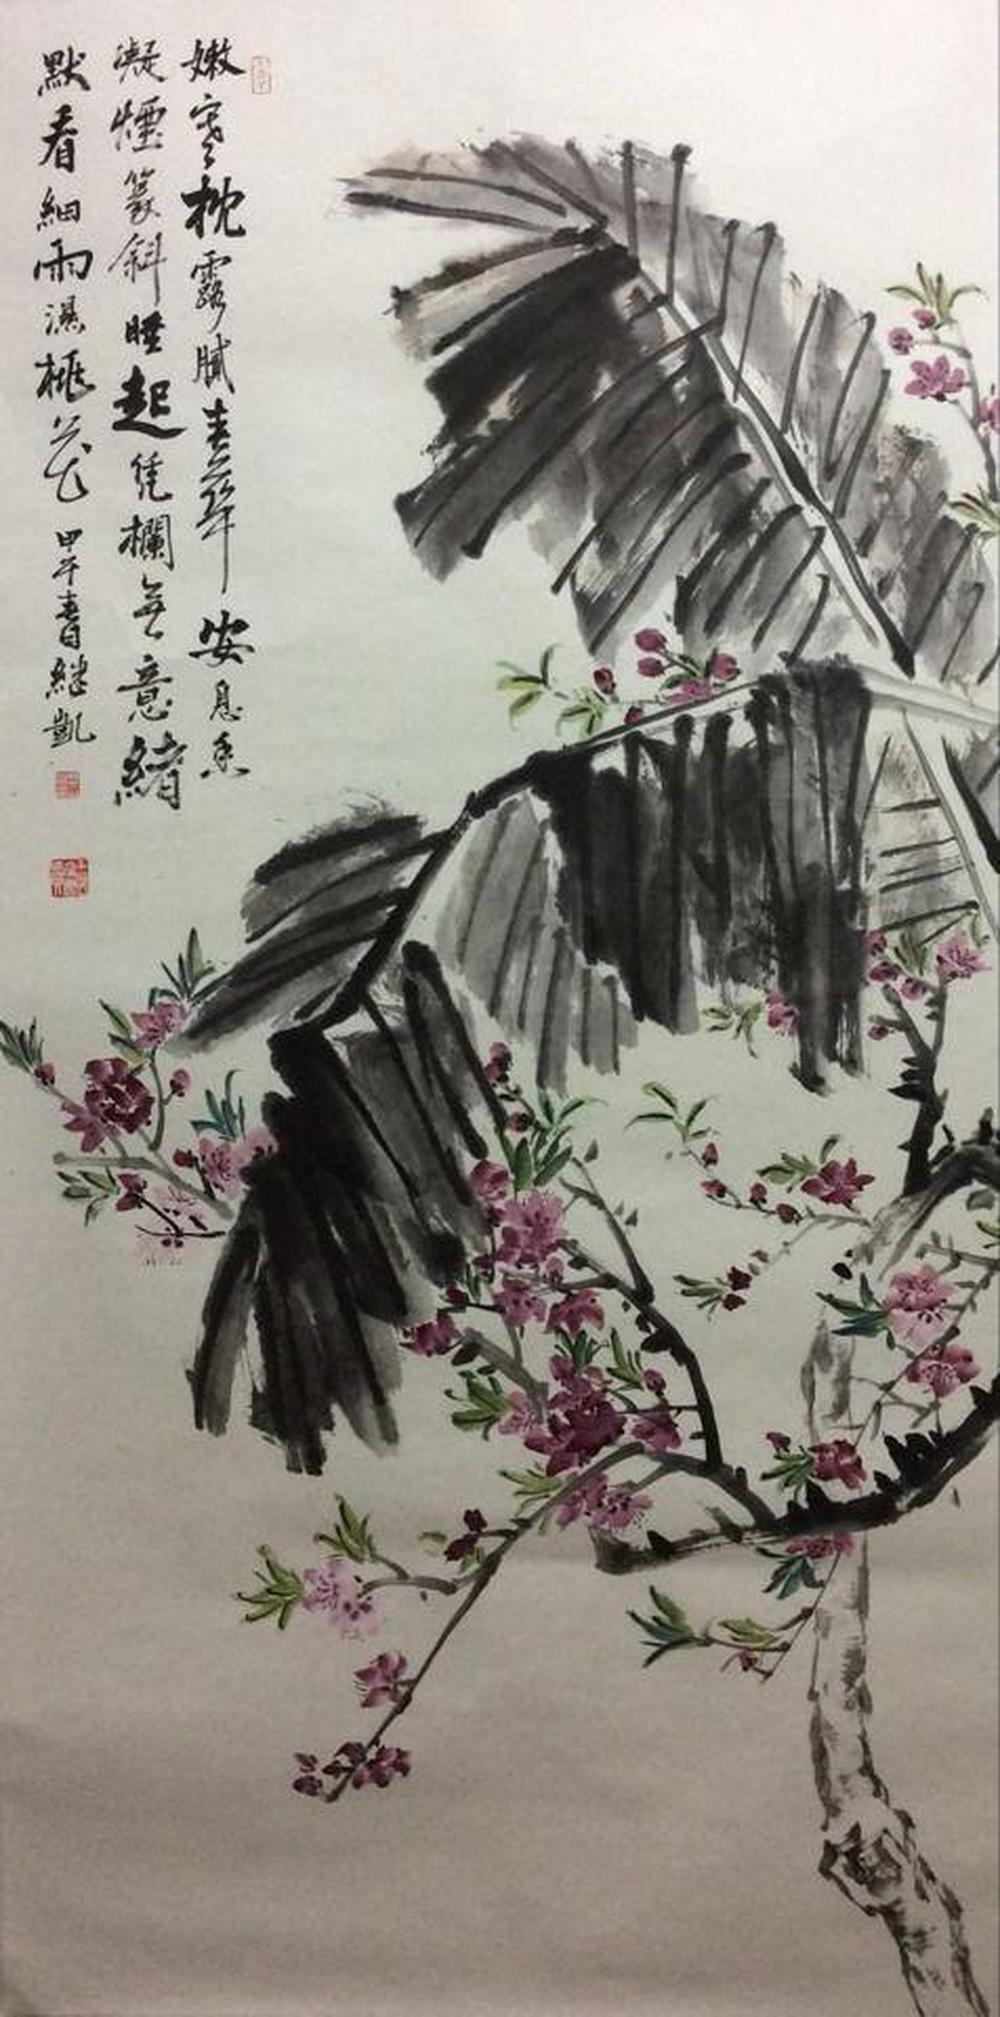 嫩寒枕露膩春華安息香
凝煙篆斜睡起凭欄無意緒
默看細雨濕桃花甲午春繼凱